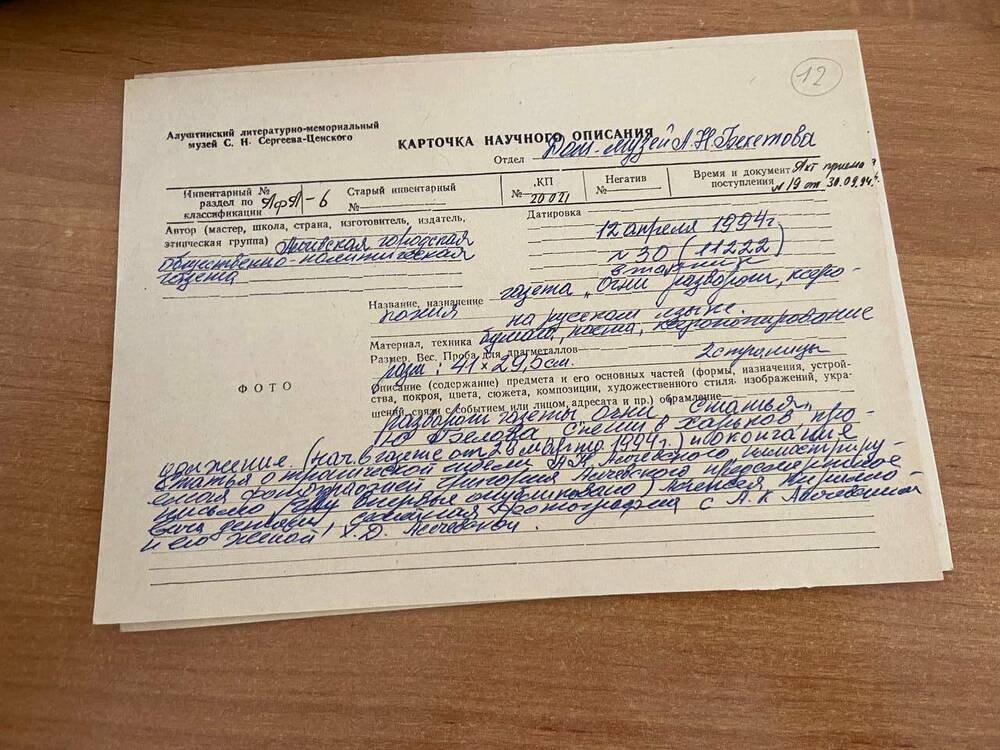 12
Алуштинский литературно-мемориальный
музей С. Н. Сергеева-Ценского
КАРТОЧКА НАУЧНОГО ОПИСАНИЯ
Отдел Дом-музей А.Н.Бекетова
Инвентарный №
раздел по
классификации ЯфЛ-6
Старый инвентарный
№
КП
№ 20021
Негатив
№
Время и документ Акт приема
поступления №19 от 30.09.94г.
Автор (мастер, школа, страна, изготовитель, издатель,
этническая группа) городская
общественно-политическая
газета
Датировка
12 апреля 1994г.
№ 30 (11222)
Название, назначение газета "Огни" разворот, ксеро-
копия на русском языке.
Материал, техника бумага, ксерокопирование
Размер. Вес. Проба для драгметаллов
разм: 41×29,5см. 2 страницы
ФОТО
Описание (содержание) предмета и его основных частей (формы, назначения, устрой-
ства, покроя, цвета, сюжета, композиции, художественного стиля. изображений, укра-
шений, связи с событием или лицом, адресата и пр.) обрамление
разворот газеты Огни Статья
Ю Белова в Харьков, про-
должение. (нач. в газете от 29 марта 1994г.) и окончание
статья о трагической гибели А.К. Алчевского
письмо впервые опубликовано) Алексея Кирилло-
вича фотография с А.К Алчевским
и его женой, Х.Д. Алчевской.